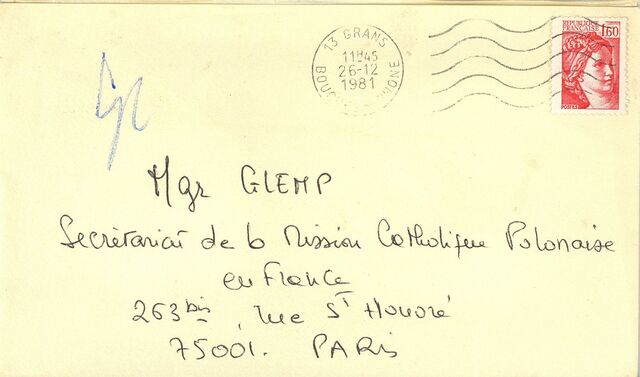 13 GRANS
11H45
26-12
1981
BOUCHES DU RHONE
REPUBLIQUE FRANÇAISE
1,60
POSTES
Mgr GLEMP
Secrétariat de la Mission Catholique Polonaise
en France
263 bis, rue St Honoré
75001. PARIS